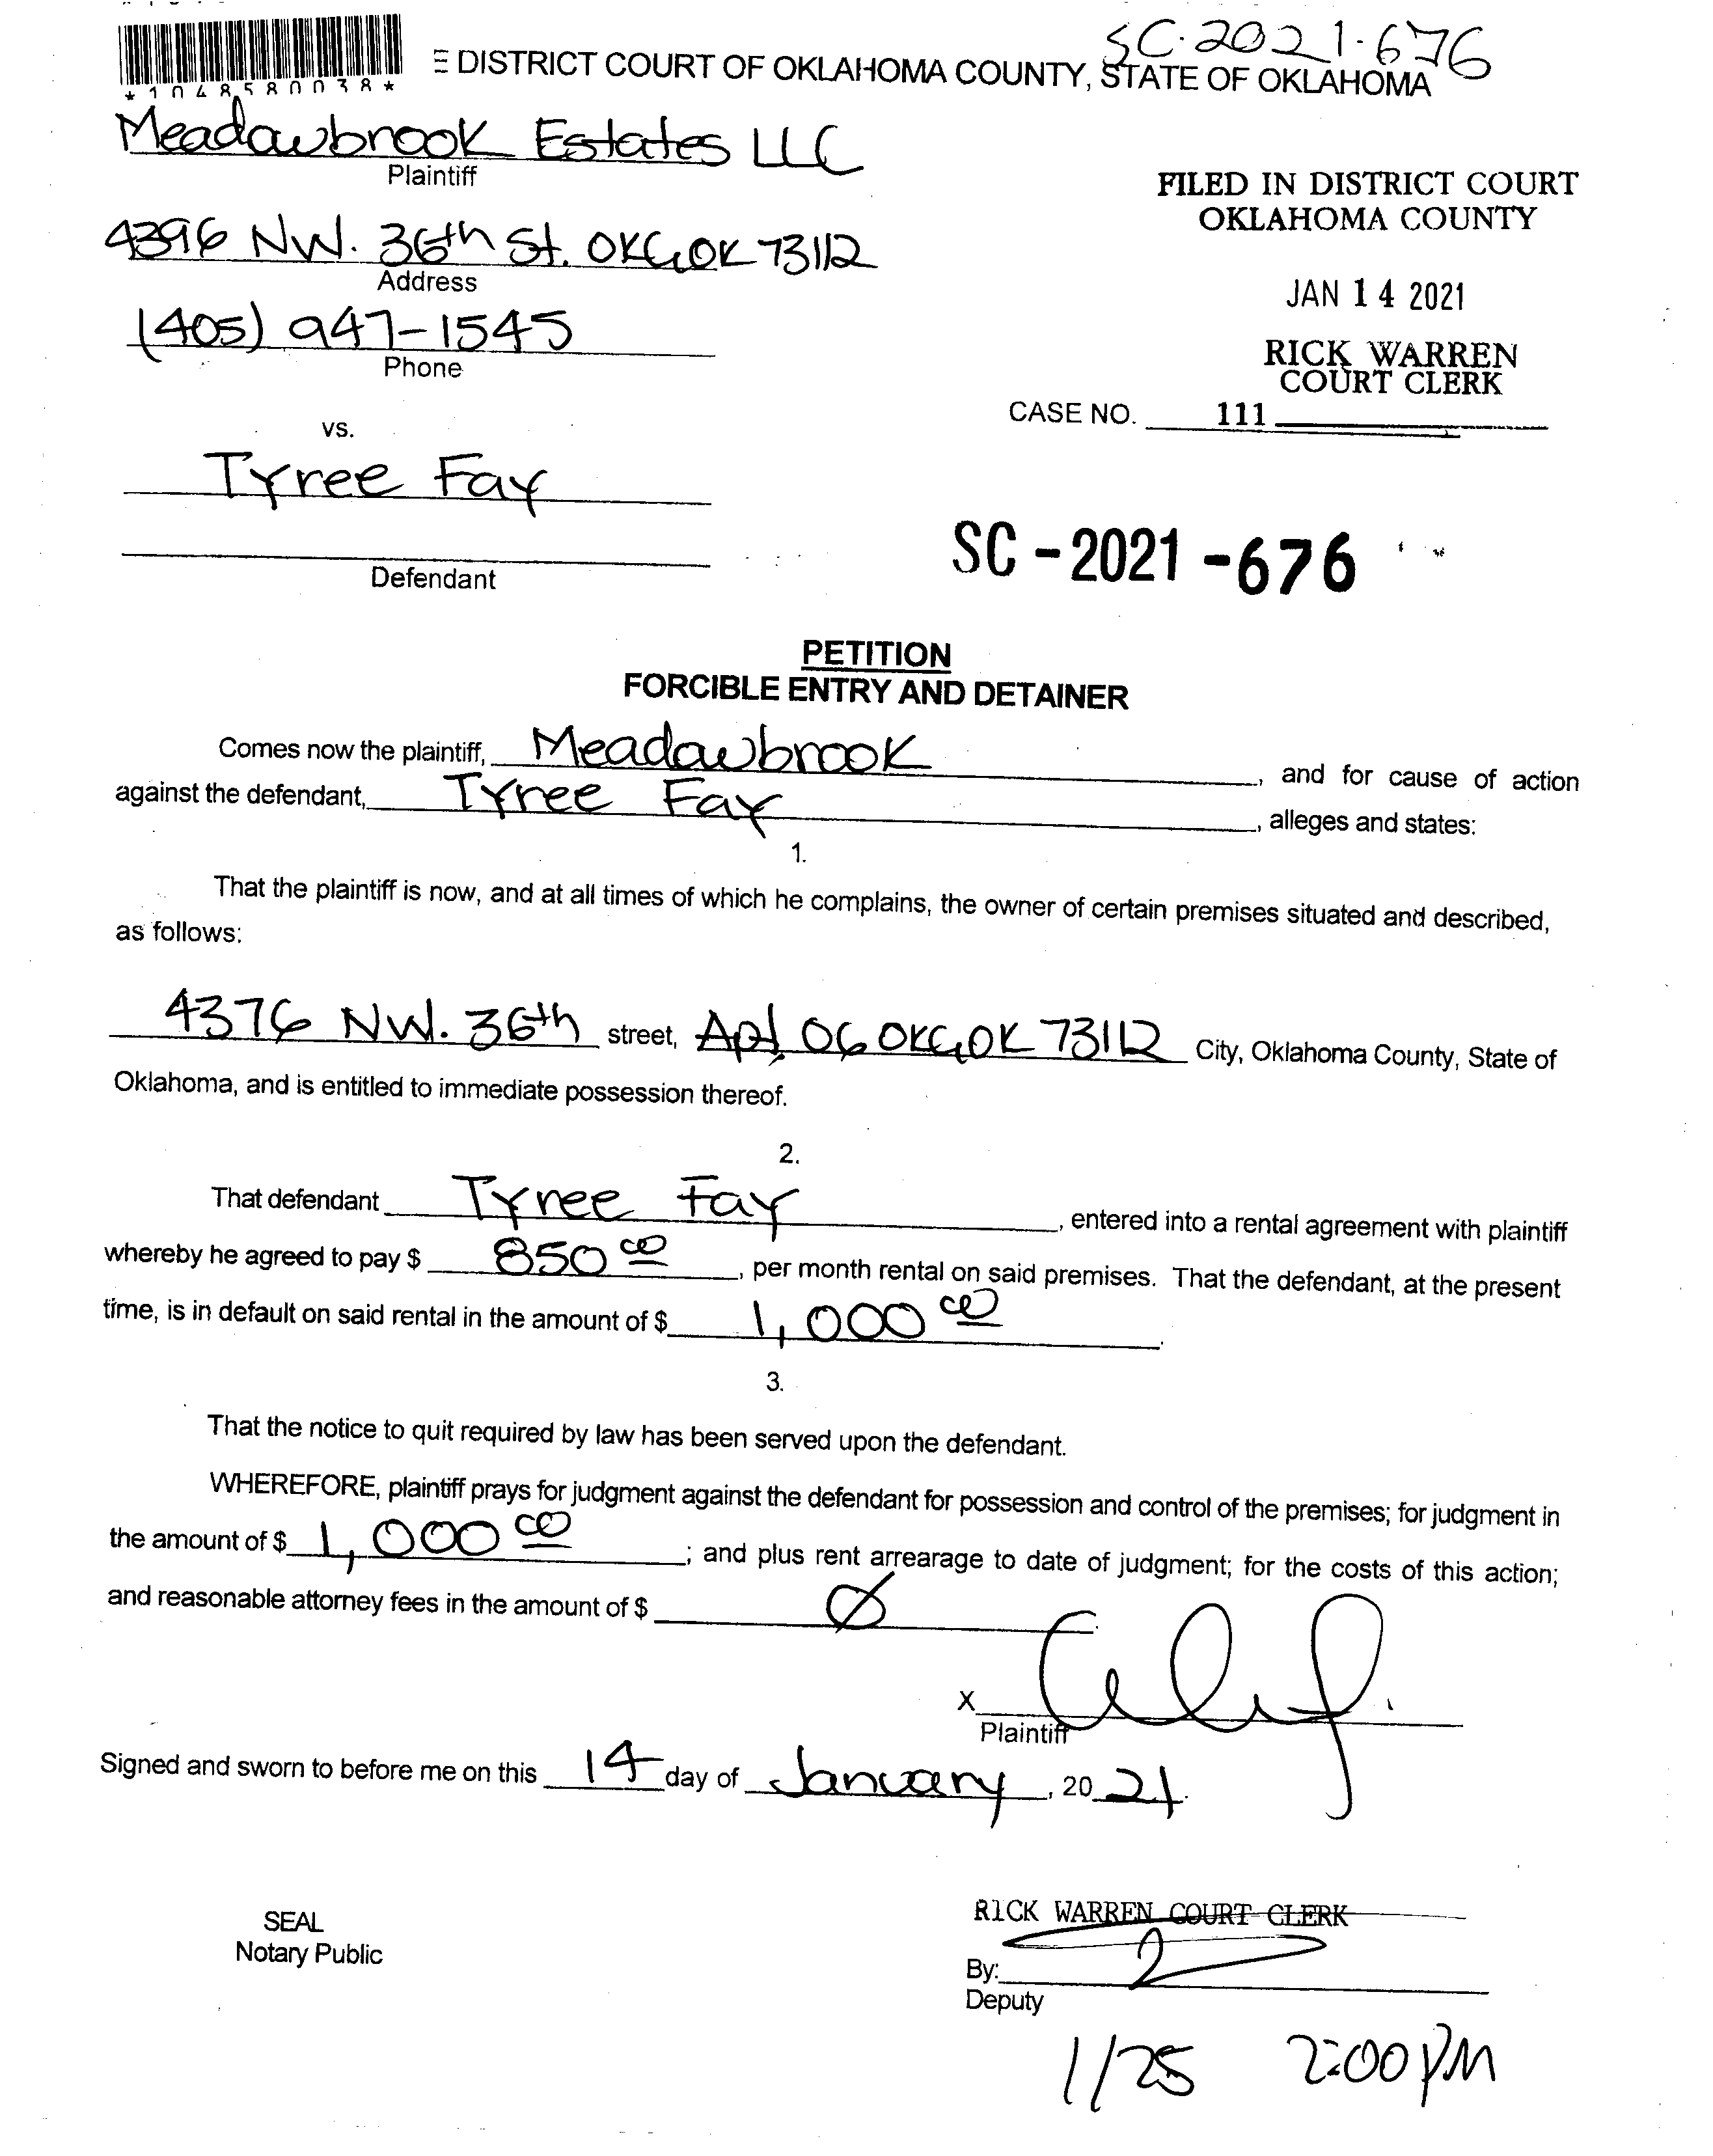 SC-2021-676
E DISTRICT COURT OF OKLAHOMA COUNTY, STATE OF OKLAHOMA
*1048580038*
Meadowbrook Estates LLC
Plaintiff
FILED IN DISTRICT COURT
OKLAHOMA COUNTY
4396 NW. 36th St. OKC, OK 73112
Address
JAN 14 2021
(405) 947-1545
Phone
RICK WARREN
COURT CLERK
CASE NO. 111
vs.
Tyree Fay
Defendant
SC-2021-676
PETITION
FORCIBLE ENTRY AND DETAINER
Comes now the plaintiff, Meadowbrook, and for cause of action
against the defendant, Tyree Fay, alleges and states:
1.
That the plaintiff is now, and at all times of which he complains, the owner of certain premises situated and described,
as follows:
4376 NW. 36th street, Apt. 06 OKC, OK 73112 City, Oklahoma County, State of
Oklahoma, and is entitled to immediate possession thereof.
2.
That defendant Tyree Fay, entered into a rental agreement with plaintiff
whereby he agreed to pay $ 850 00, per month rental on said premises. That the defendant, at the present
time, is in default on said rental in the amount of $ 1,000 00.
3.
That the notice to quit required by law has been served upon the defendant.
WHEREFORE, plaintiff prays for judgment against the defendant for possession and control of the premises; for judgment in
the amount of $ 1,000 00; and plus rent arrearage to date of judgment; for the costs of this action;
and reasonable attorney fees in the amount of $ Ø.
X
Plaintiff
Signed and sworn to before me on this 14 day of January, 2021.
SEAL
Notary Public
RICK WARREN COURT CLERK
By:
Deputy
1/25 2:00 PM